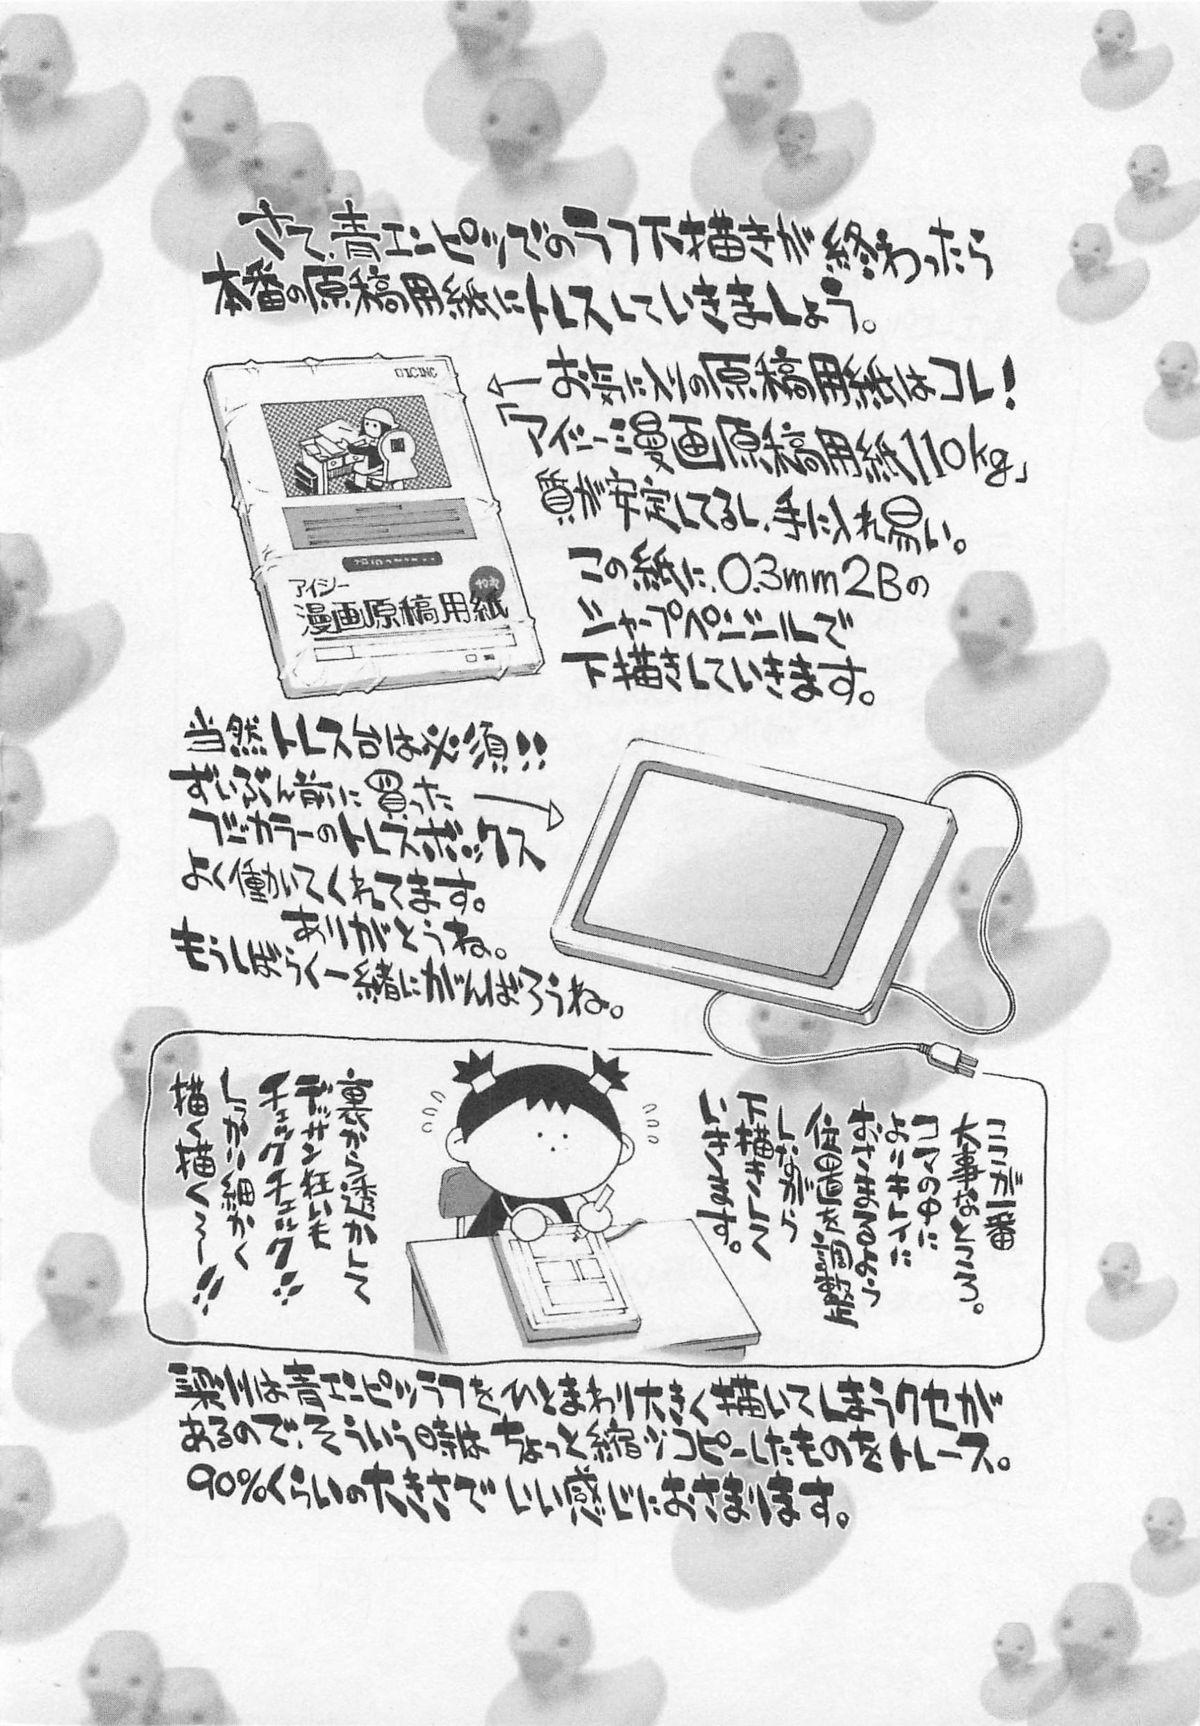 さて、青エンピツでのラフ下描きが終わったら
本番の原稿用紙にトレスしていきましょう。
お気に入りの原稿用紙はコレ!
「アイシー漫画原稿用紙110kg」
質が安定してるし、手に入れ易い。
この紙に、0.3mm2Bの
シャープペンシルで
下描きしていきます。
ICINC
アイシー
漫画原稿用紙
当然トレス台は必須!!
ずいぶん前に買った
フジカラーのトレスボックス
よく働いてくれてます。
ありがとうね。
もうしばらく一緒にがんばろうね。
ここが一番
大事なところ。
コマの中に
よりキレイに
おさまるよう
位置を調整
しながら
下描きして
いきます。
裏から透かして
デッサン狂いも
チェックチェック!!
しっかり細かく
描く描く〜〜!!
は青エンピツラフをひとまわり大きく描いてしまうクセが
あるので、そういう時はちょっと縮小コピーしたものをトレース。
90%くらいの大きさでいい感じにおさまります。